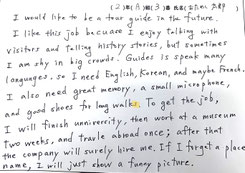 (2)組(A)組(3)番 氏名(
I would like to be a tour guide in the future.
I like this job becuase I enjoy talking with
visitors and telling history stories, but sometimes
I am shy in big crowds. Guides is speak many
longuages, so I need English, Korean, and maybe French.
I also need great memory, a small microphone,
and good shoes for long walks. To get the job,
I will finish unnivercity, then work at a museum
Two weeks, and travle abroad once; after that
the company will surely hire me. If I forget a place
name, I will just show a funny picture.